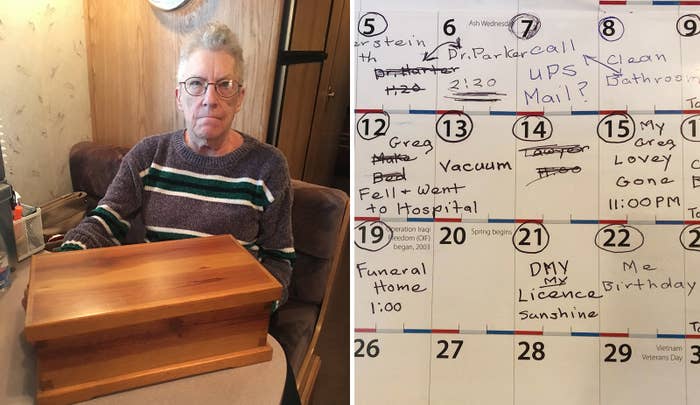 5
erstein
th
Dr. Harter
1:20
6
Ash Wednesday
Dr. Parker
2:20
7
call
UPS
Mail?
8
Clean
Bathroom
9
12
Greg
Make
Bed
Fell + Went
to Hospital
13
Vacuum
14
Lawyer
11:00
15
My
Greg
Lovey
Gone
11:00 PM
19
Operation Iraqi
Freedom (OIF)
began, 2003
Funeral
Home
1:00
20
Spring begins
21
DMV
My
Licence
Sunshine
22
Me
Birthday
26
27
28
29
Vietnam
Veterans Day
3